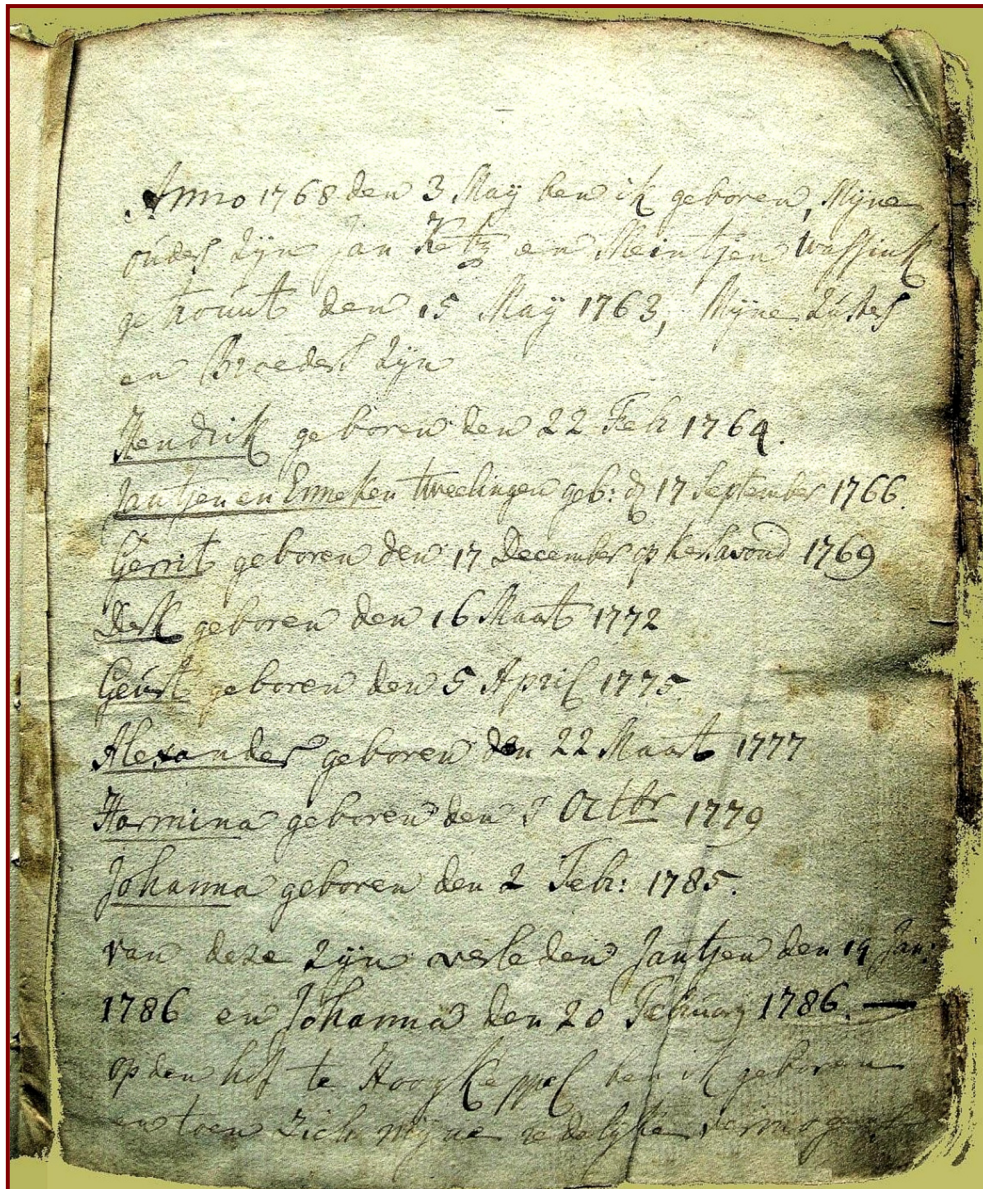 Anno 1768 den 3 Maÿ ben ik geboren, Mÿne
ouders zÿn Jan Ketz en Meintjen Wassink
getrouut den 15 Maÿ 1763, Mÿne Zusters
en Broeders zÿn
Hendrik geboren den 22 Feb 1764.
Jantjen en Enneken tweelingen geb: d 17 September 1766.
Gerrit geboren den 17 December op kersavond 1769
Derk geboren den 16 Maart 1772
Geurt geboren den 5 April 1775.
Alexander geboren den 22 Maart 1777
Harmina geboren den Octbr 1779
Johanna geboren den 2 Febr: 1785.
van deze zÿn verleden Jantjen den 19 Jan:
1786 en Johanna den 20 Februarÿ 1786. —
op den hof te Hoog Keppel ben ik geboren
en toen zich mÿne redelÿke